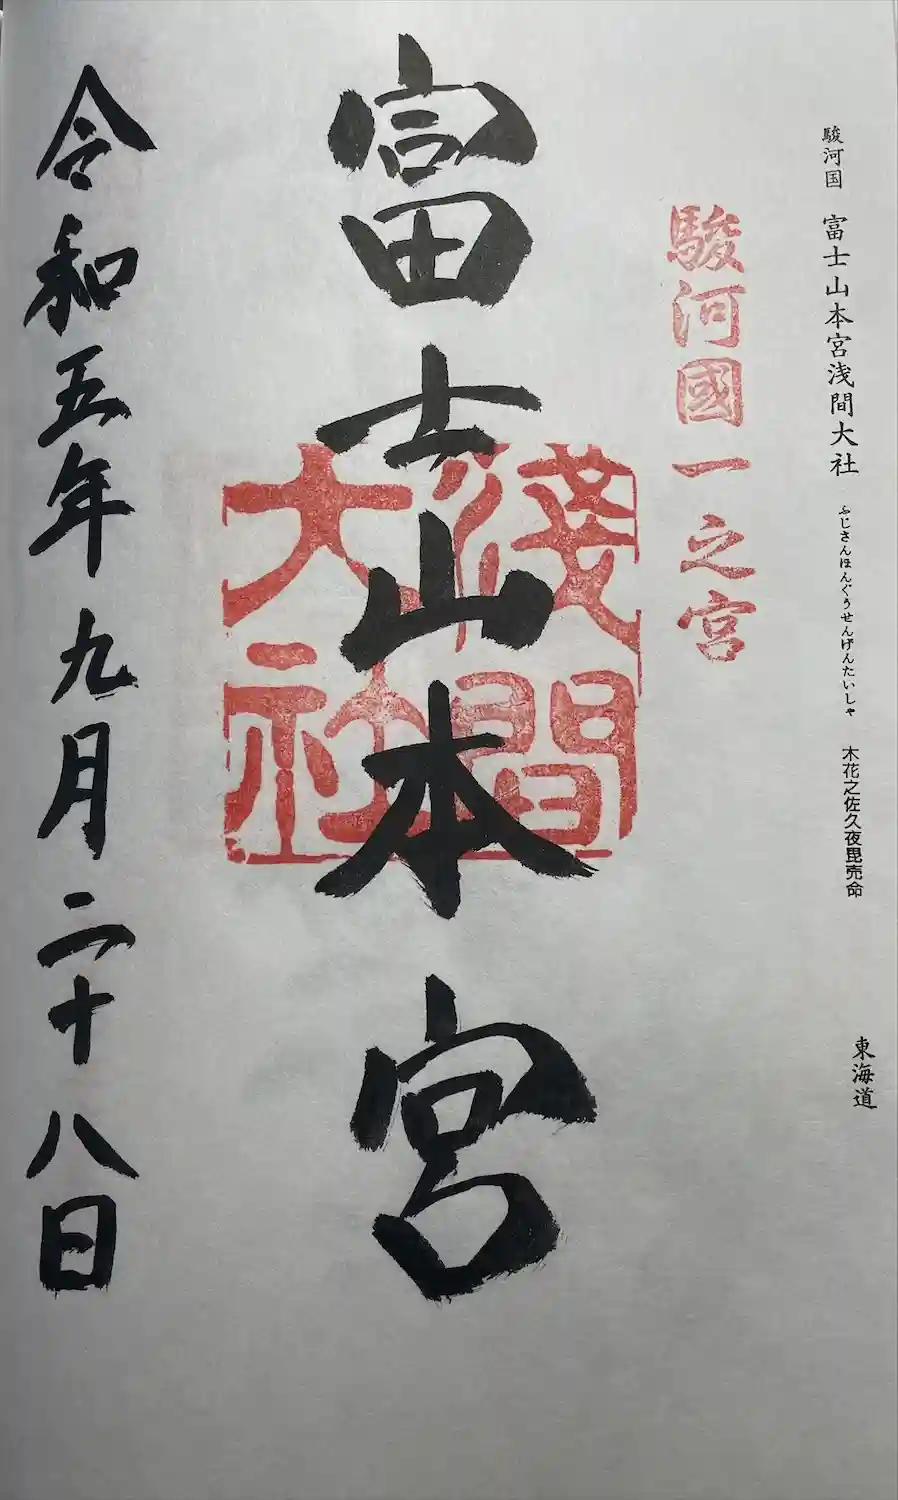 駿河国　富士山本宮浅間大社　ふじさんほんぐうせんげんたいしゃ　木花之佐久夜毘売命　東海道
駿河國一之宮
富士山本宮
淺間大社
令和五年九月二十八日